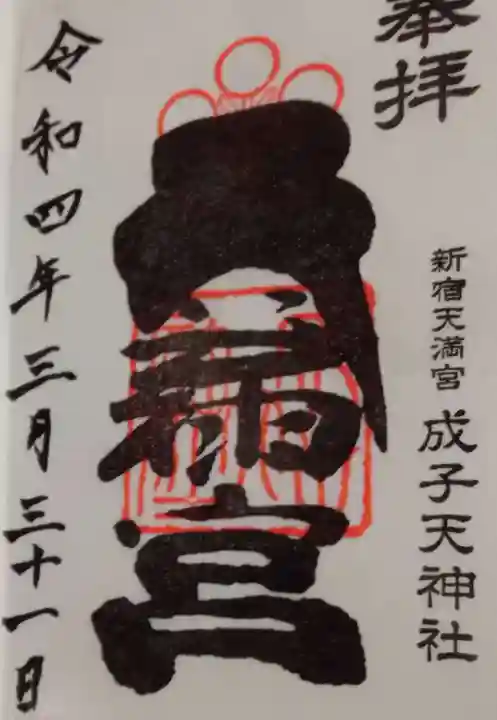 奉拝
新宿天満宮 成子天神社
天満宮
令和四年三月三十一日